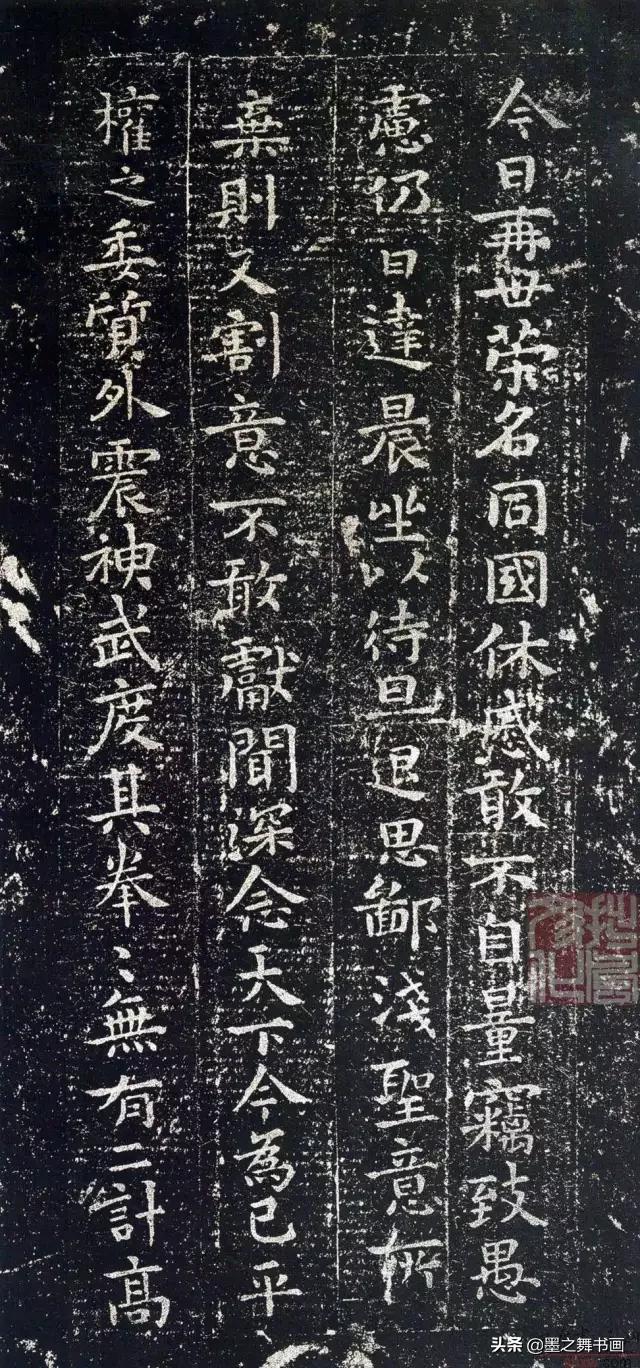 今日再世榮名同國休慼敢不自量竊致愚
慮仍日達晨坐以待旦退思鄙淺聖意所
棄則又割意不敢獻聞深念天下今為已平
權之委質外震神武度其拳〻無有二計高
头条 @墨之舞书画